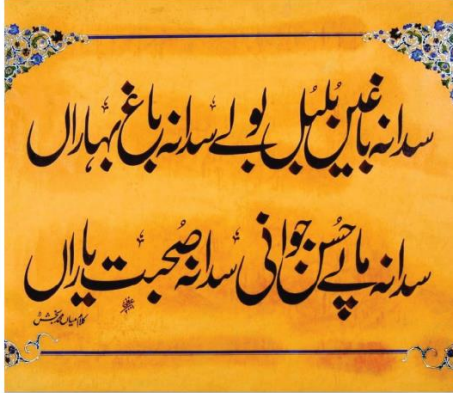 سدا نہ باغیں بُلبُل بولے سدا نہ باغ بہاراں
سدا نہ ماپے حُسن جوانی سدا نہ صُحبت یاراں
کلام میاں محمد بخش